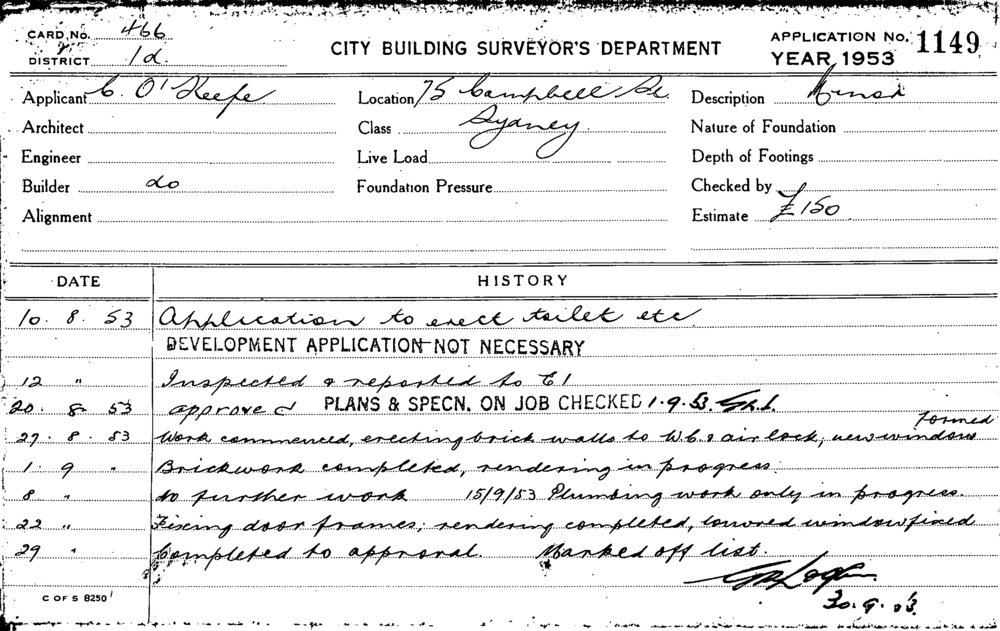 CARD No. 466
DISTRICT 1d.
CITY BUILDING SURVEYOR'S DEPARTMENT
APPLICATION No. 1149
YEAR 1953
Applicant C. O'Keefe
Location 75 Campbell St.
Description Minor
Architect
Class Sydney
Nature of Foundation
Engineer
Live Load
Depth of Footings
Builder do
Foundation Pressure
Checked by
Alignment
Estimate £150
DATE HISTORY
10. 8. 53 Application to erect toilet etc
DEVELOPMENT APPLICATION NOT NECESSARY
12 " Inspected & reported to E1
20. 8 53 approved PLANS & SPECN. ON JOB CHECKED 1.9.53.
27. 8. 53 Work commenced, erecting brick walls to W.C. & air lock, new window formed
1. 9 " Brickwork completed, rendering in progress.
8 " No further work 15/9/53 Plumbing work only in progress.
22 " Fixing door frames; rendering completed, louvred window fixed
29 " Completed to approval. Marked off list.
30. 9. 53.
C OF S 8250